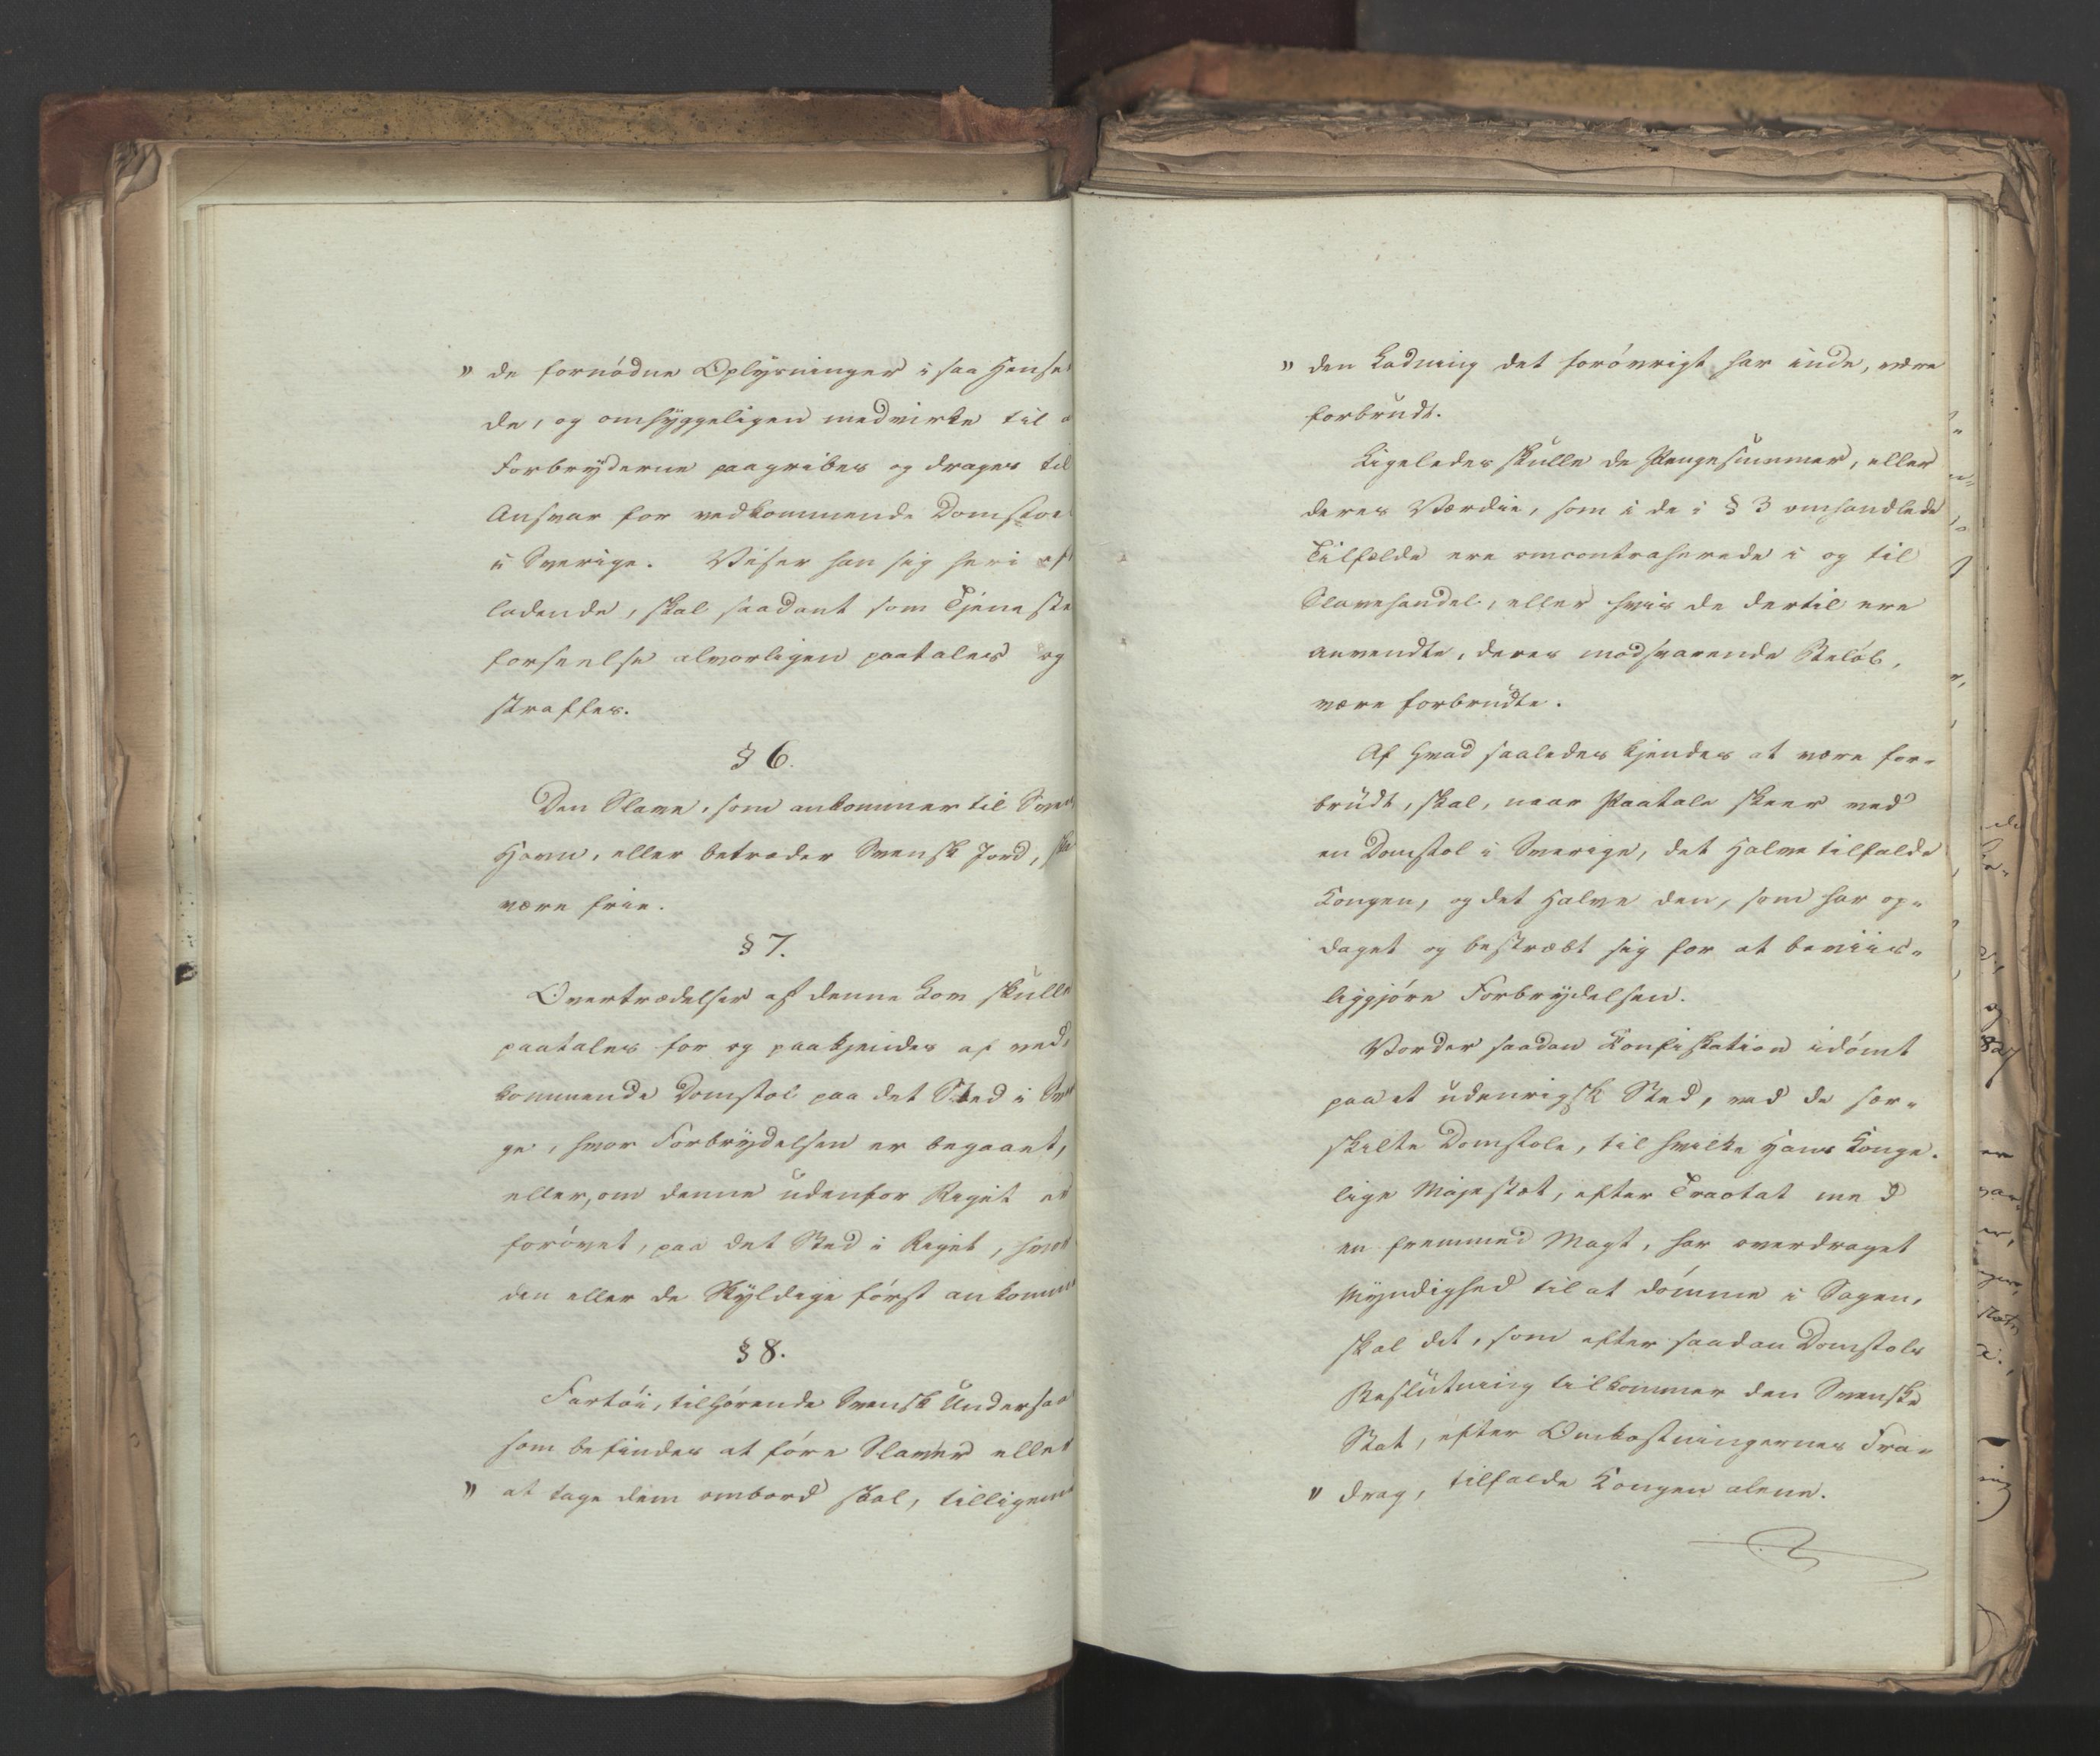 " de fornódne Oplysninger i saa Hense-
de, og omhyggeligen medvirke til a
Forbryderne paagribes og drages til
Ansvar for vedkommende Domstol
i Sverige. Viser han sig heri ef
ladende, skal saadant som Tjeneste
forseelse alvorligen paatales og
straffes.
§ 6.
Den Slave, som ankommer til Svens
Havn, eller betræder Svensk Jord, ska
være frie.
§ 7.
Overtrædelser af denne Lov skulle
paatales for og paakjendes af ved,
kommende Domstol paa det Sted i Sve
ge, hvor Forbrydelsen er begaaet,
eller, om denne udenfor Riget er
forövet, paa det Sted i Riget, hvor
den eller de Skyldige först ankomme
§ 8.
Fartöi, tilhörende Svensk Undersaa
som befindes at före Slaver eller
" at tage dem ombord skal, tilligeme
" den Ladning det foróvrigt har inde, være
forbrudt.
Ligeledes skulle de Pengesummer, eller
deres Værdie, som i de i § 3 omhandlede
Tilfælde ere omcontraherede i og til
Slavehandel, eller hvis de dertil ere
anvendte, deres modsvarende Belöb,
være forbrudte.
Af Hvad saaledes kjendes at være for-
brudt, skal, naar Paatale skeer ved
en Domstol i Sverige, det Halve tilfalde
Kongen, og det Halve den, som har op-
daget og bestræbt sig for at beviis-
liggjöre Forbrydelsen.
Vorder saadan Konfiskation idömt
paa et udenrigsk Sted, ved de sær-
skilte Domstole, til hvilke Hans Konge-
lige Majestæt, efter Tractat med
en fremmed Magt, har overdraget
Myndighed til at dömme i Sagen,
skal det, som efter saadan Domstols
Beslutning tilkommer den Svenske
Stat, efter Omkostningernes Fra-
" drag, tilfalde Kongen alene.